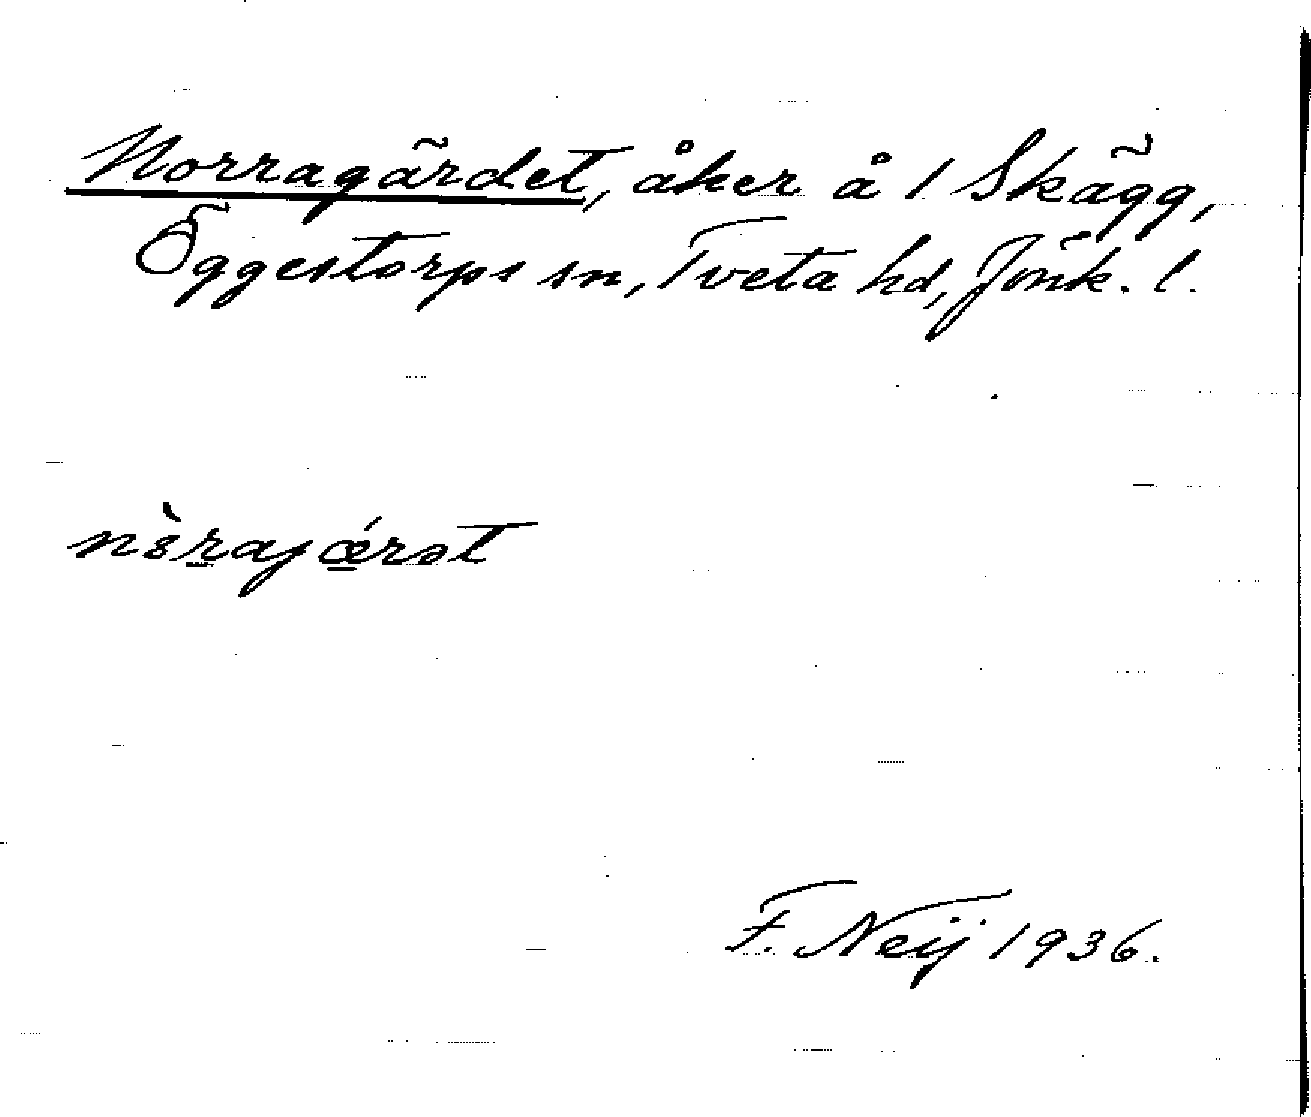 Norragärdet, åker å 1 Skägg,
Öggestorps sn, Tveta hd, Jönk. l.
nòrajǽrət
F. Neij 1936.